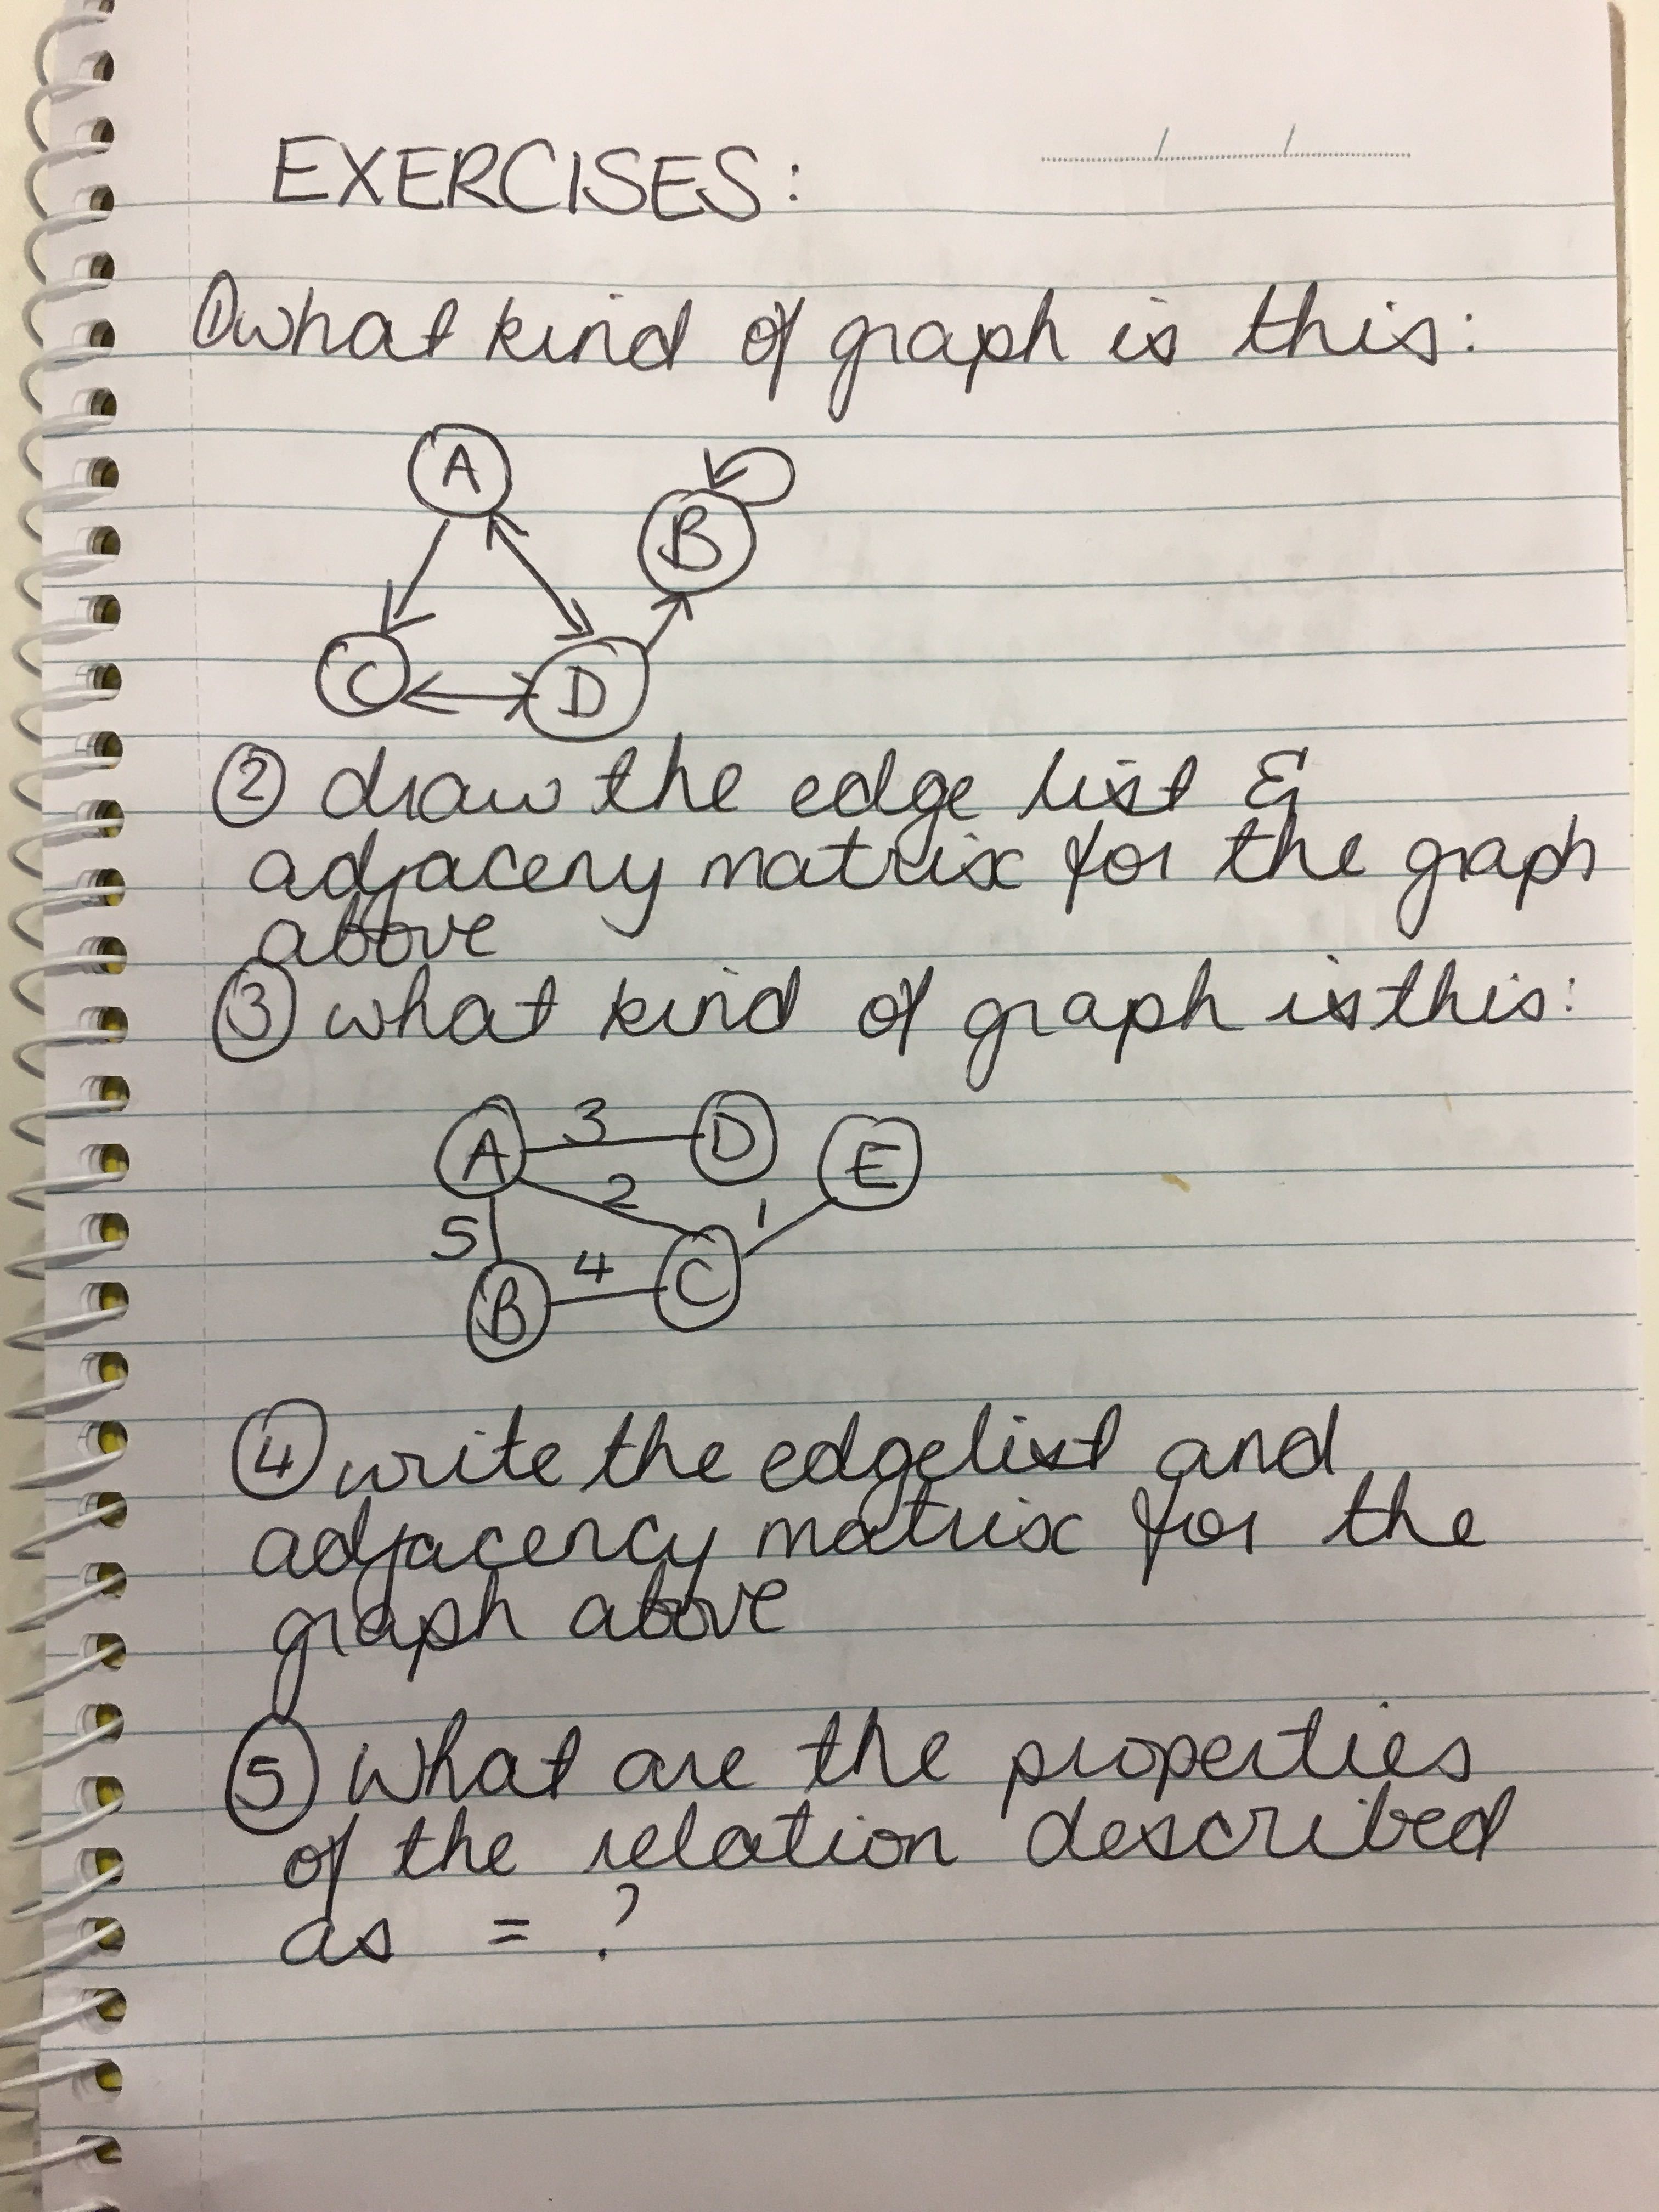 EXERCISES:
① what kind of graph is this:
A
B
C
D
② draw the edge list &
adjaceny matrix for the graph
above
③ what kind of graph is this:
A 3 D E
2 1
5
B 4 C
④ write the edgelist and
adjacency matrix for the
graph above
⑤ What are the properties
of the relation described
as = ?